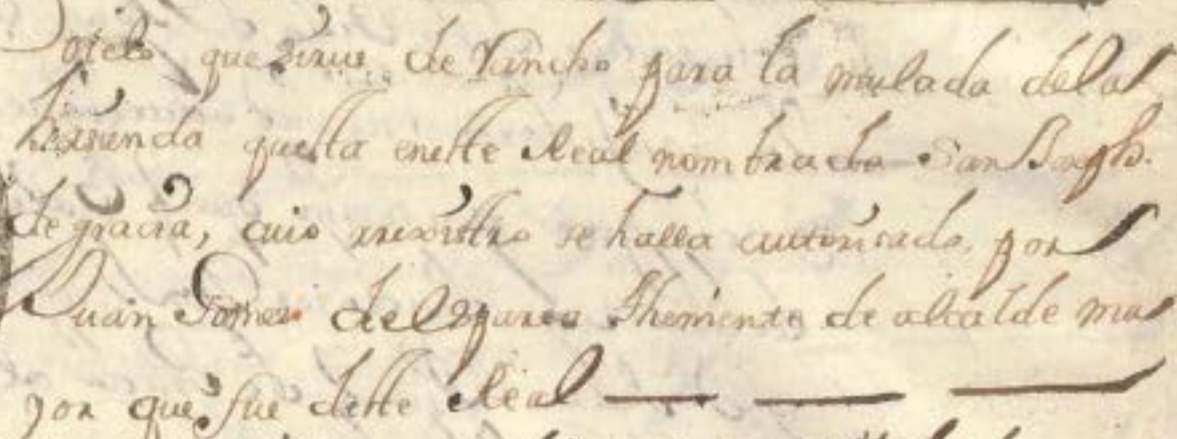 Sotelo que sirue de Rancho para la mulada dela
hazienda questa eneste Real nombrado San Joseph
de gracia, cuio rexistro se halla autorisado por
Juan Gomes del Theniente de alcalde ma
yor que fue deste Real